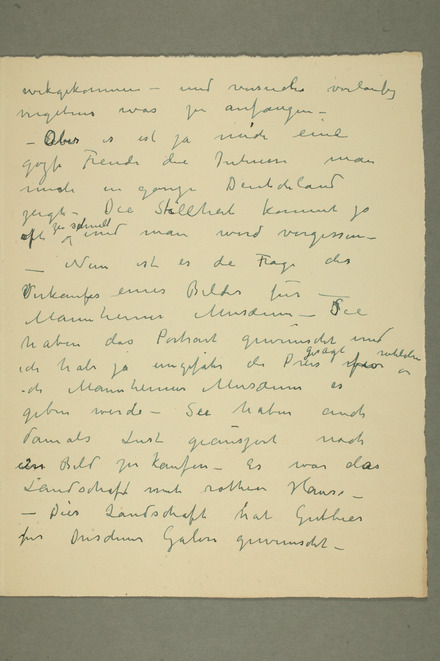 und versuche vorläufig
was zu anfangen –
– Aber es ist ja eine
Freude die man
in ganze Deutschland
zeigt – Die Stillheit kommt ja
oft zu schnell und man wird vergessen –
– Nun ist es die Frage des
Verkaufes eines Bildes für –
Mannheimer Museum – Sie
haben das Portrait gewünscht und
ich habe ja ungefähr die Preis gesagt
ich Mannheimer Museum es
geben werde – Sie haben auch
damals Lust geäussert noch
ein Bild zu kaufen – Es war das
Landschaft mit rothen Hause –
– Dies Landschaft hat Gutbier
für Dresdener Galerie gewünscht –